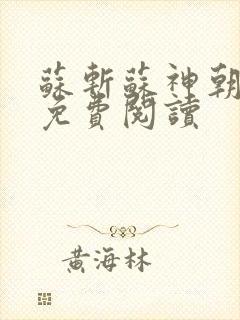 蘇斬蘇神朝
免費閱讀
黃海林